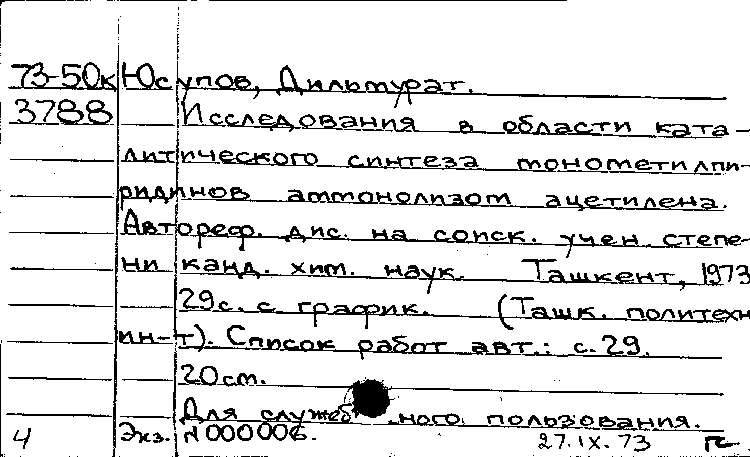 73-50к Юсупов, Дильмурат.
3788 Исследования в области ката-
литического синтеза монометилпи-
ридинов аммонолизом ацетилена.
Автореф. дис. на соиск. учен степе-
ни канд. хим. наук. Ташкент, 1973
29с. с график. (Ташк. политехн
ин-т). Список работ авт.: с. 29.
20см.
Для служебного пользования.
4 Экз. N000006. 27.IX.73